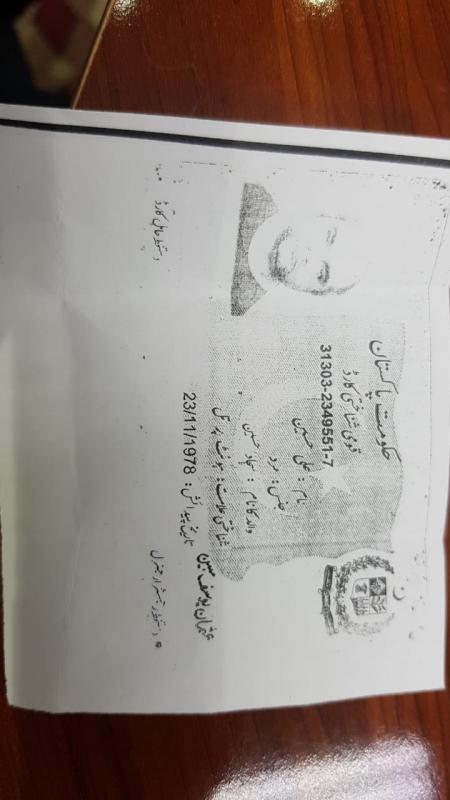 حکومت پاکستان
قومی شناختی کارڈ
31303-2349551-7
نام : علی حسین
جنس : مرد
والد کا نام : سجاد حسین
شناختی علامت : ہونٹ پر تل
تاریخ پیدائش : 23/11/1978
دستخط حامل کارڈ
دستخط رجسٹرار جنرل